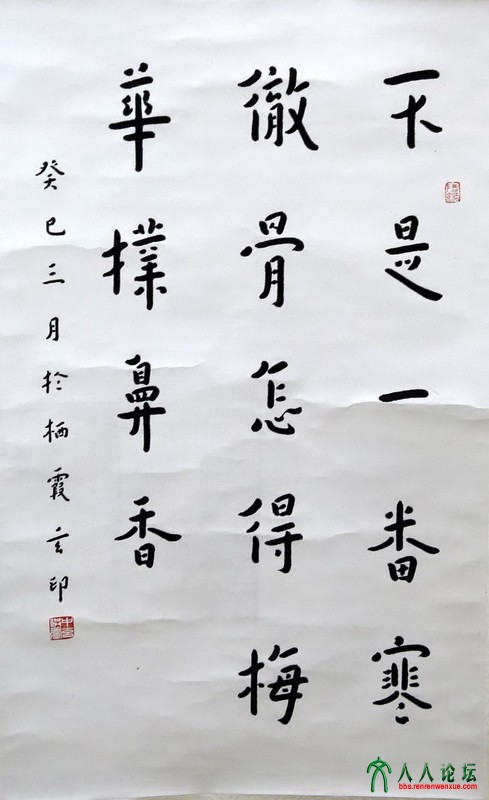 不是一番寒
徹骨怎得梅
華撲鼻香
癸巳三月於栖霞玄印
人人论坛
bbs.renrenwenxue.com